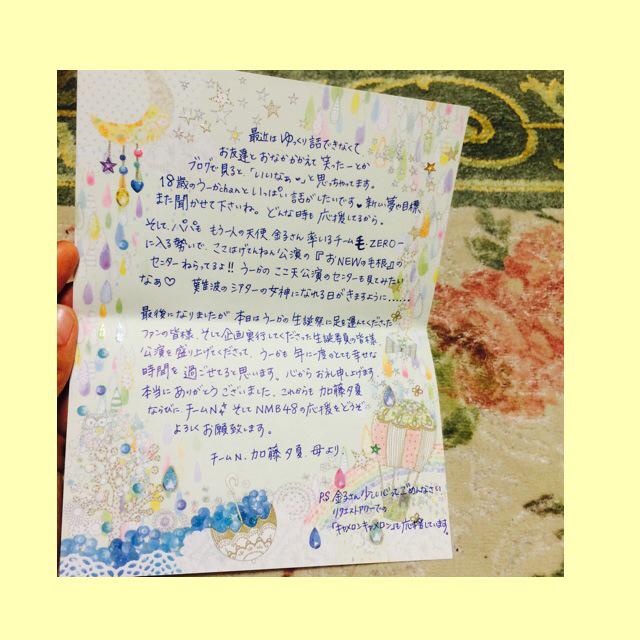 最近は ゆっくり話できなくて
お友達とおなかかかえて笑ったーとか
ブログで見ると「いいなぁ♥」と思っちゃってます。
18歳のうーかchanといっぱい話がしたいでーす♥新しい夢や目標
また聞かせて下さいね。どんな時も応援してるから。
そして、パパも もう一人の天使 金子さん率いるチーム毛.ZERO-
に入る勢いで、ここはげてんねん公演の『おNEWの毛根』の
センターねらってるよ!! うーかの ここ天公演のセンターも見てみたい
なぁ♡ 難波のシアターの女神になれる日がきますように……
最後になりましたが 本日はうーかの生誕祭に足を運んでくださった
ファンの皆様、そして企画実行してくださった生誕委員の皆様、
公演を盛り上げてくださって、うーかも 年に一度のとても幸せな
時間を過ごせてると思います。心からお礼申し上げます。
本当にありがとうございました。これからも 加藤夕夏
ならびに チームN、そして NMB48の応援をどうぞ
よろしくお願致します。
チームN. 加藤夕夏. 母より.
P.S. 金子さん少しいじってごめんなさい
リクエストアワーでの
「キャメロンキャメロン」も応援しています。